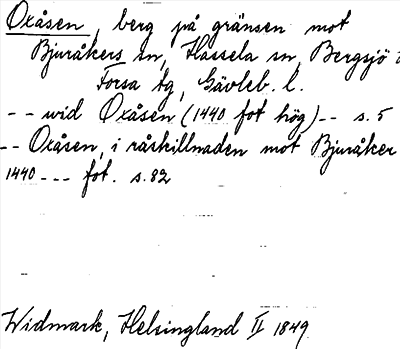 Oxåsen, berg på gränsen mot
Bjuråkers sn, Hassela sn, Bergsjö
Forsa tg, Gävleb. l.
-- wid Oxåsen (1440 fot hög) -- s. 5
-- Oxåsen, i råskillnaden mot Bjuråker
1440 --- fot. s. 82
Widmark, Helsingland II 1849